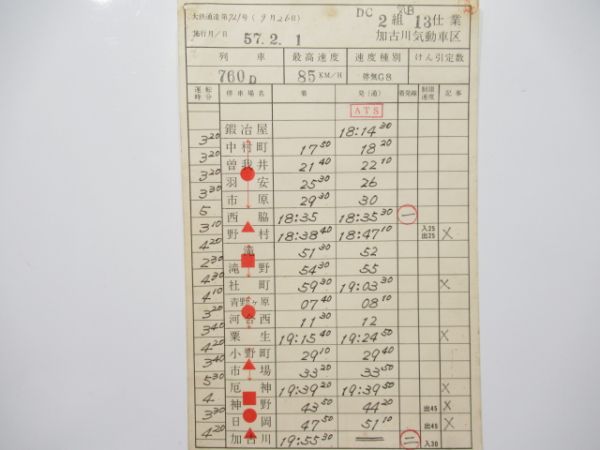 大鉄達第721号 (9月26日)
DC 2組 13仕業
施行月/日 57.2.1 加古川気動車区
列車 最高速度 速度種別 けん引定数
760D 85KM/H 停気G8
運転時分 停車場名 着 発(通) 着発線 制限速度 記事
ATS
鍛冶屋 18:14 30
3 20
中村町 17 50 18 20
3 20
曽我井 21 40 22 10
3 20
羽安 25 30 26
3 30
市原 29 30 30
5
西脇 18:35 18:35 30 一
3 10
野村 18:38 40 18:47 10 入25 出25 ×
4 20
滝 51 30 52
2 30
滝野 54 30 55
4 30
社町 59 30 19:03 30 ×
4 10
青野ヶ原 07 40 08 10
3 20
河合西 11 30 12
3 40
粟生 19:15 40 19:24 50 ×
4 20
小野町 29 10 29 40
3 40
市場 33 20 33 50
5 30
厄神 19:39 20 19:39 50 ×
4
神野 43 50 44 20 出45 ×
3 30
日岡 47 50 51 10 出45 ×
4 20
加古川 19:55 30 二 入30